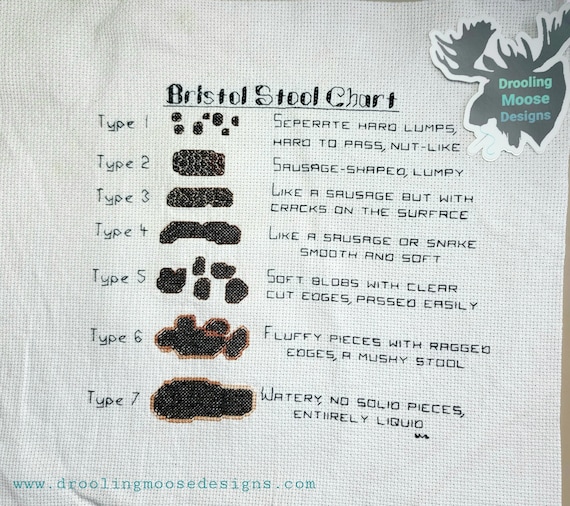 Drooling
Moose
Designs
Bristol Stool Chart
Type 1
SEPERATE HARD LUMPS,
HARD TO PASS, NUT-LIKE
Type 2
SAUSAGE-SHAPED, LUMPY
Type 3
LIKE A SAUSAGE BUT WITH
CRACKS ON THE SURFACE
Type 4
LIKE A SAUSAGE OR SNAKE
SMOOTH AND SOFT
Type 5
SOFT BLOBS WITH CLEAR
CUT EDGES, PASSED EASILY
Type 6
FLUFFY PIECES WITH RAGGED
EDGES, A MUSHY STOOL
Type 7
WATERY, NO SOLID PIECES,
ENTIIRELY LIQUID
www.droolingmoosedesigns.com